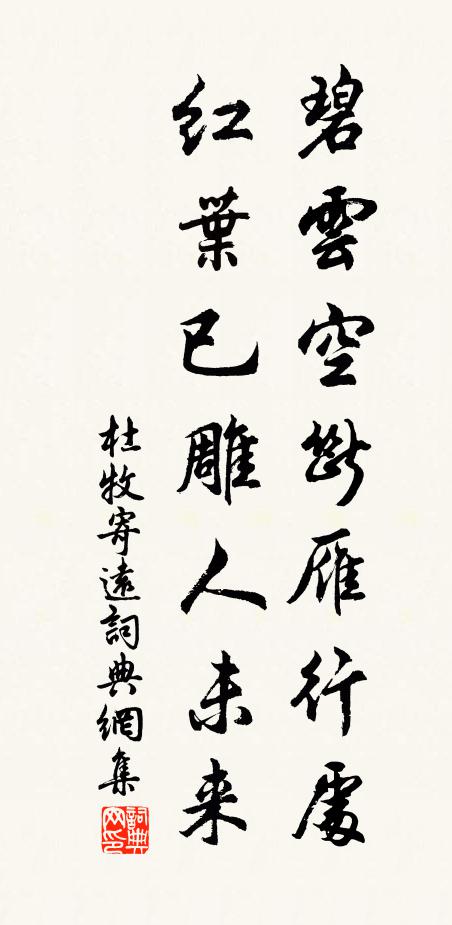 碧雲空斷雁行處
紅葉已雕人未来
杜牧寄遠詞典網集
詞典網印